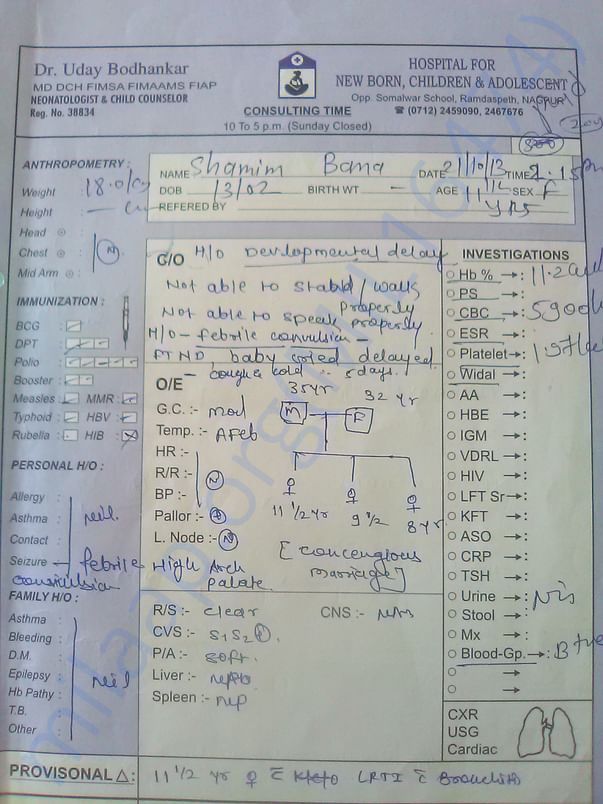 Dr. Uday Bodhankar
MD DCH FIMSA FIMAAMS FIAP
NEONATOLOGIST & CHILD COUNSELOR
Reg. No. 38834
CONSULTING TIME
10 To 5 p.m. (Sunday Closed)
HOSPITAL FOR
NEW BORN, CHILDREN & ADOLESCENT
Opp. Somalwar School, Ramdaspeth, NAGPUR
☎ (0712) 2459090, 2467676
NAME Shamim Bano DATE 21/10/13 TIME 2.15pm
DOB 13/02 BIRTH WT - AGE 11 1/2 yrs SEX F
REFERED BY
ANTHROPOMETRY :
Weight : 18.0
Height :
Head
Chest (N)
Mid Arm
IMMUNIZATION :
BCG :
DPT :
Polio :
Booster :
Measles : MMR :
Typhoid : HBV :
Rubella : HIB :
PERSONAL H/O :
Allergy :
Asthma : nil
Contact :
Seizure - febrile
convulsion
FAMILY H/O :
Asthma :
Bleeding :
D.M. :
Epilepsy : nil
Hb Pathy :
T.B. :
Other :
C/O H/O Developmental delay
Not able to stand / walk
properly
Not able to speak properly
H/O - febrile convulsion -
FTND, baby cried delayed
- cough & cold 5 days
O/E :-
35yr 32 yr
M F
11 1/2 yr 9 1/2 8 yr
G.C. :- mod
Temp. :- AFeb
HR :-
R/R :- (N)
BP :-
Pallor :- +
L. Node :- (N)
High Arch
palate.
R/S :- clear CNS :-
CVS :- S1S2
P/A :- soft
Liver :-
Spleen :- NP
INVESTIGATIONS
Hb % → : 11.2
PS → :
CBC → : 5900
ESR → :
Platelet → :
Widal → :
AA → :
HBE → :
IGM → :
VDRL → :
HIV → :
LFT Sr → :
KFT → :
ASO → :
CRP → :
TSH → :
Urine → :
Stool → :
Mx → :
Blood-Gp. → : B +ve
→
→
CXR
USG
Cardiac
PROVISONAL △ : 11 1/2 yr ♀ c̄ LRTI c̄
milaap.org